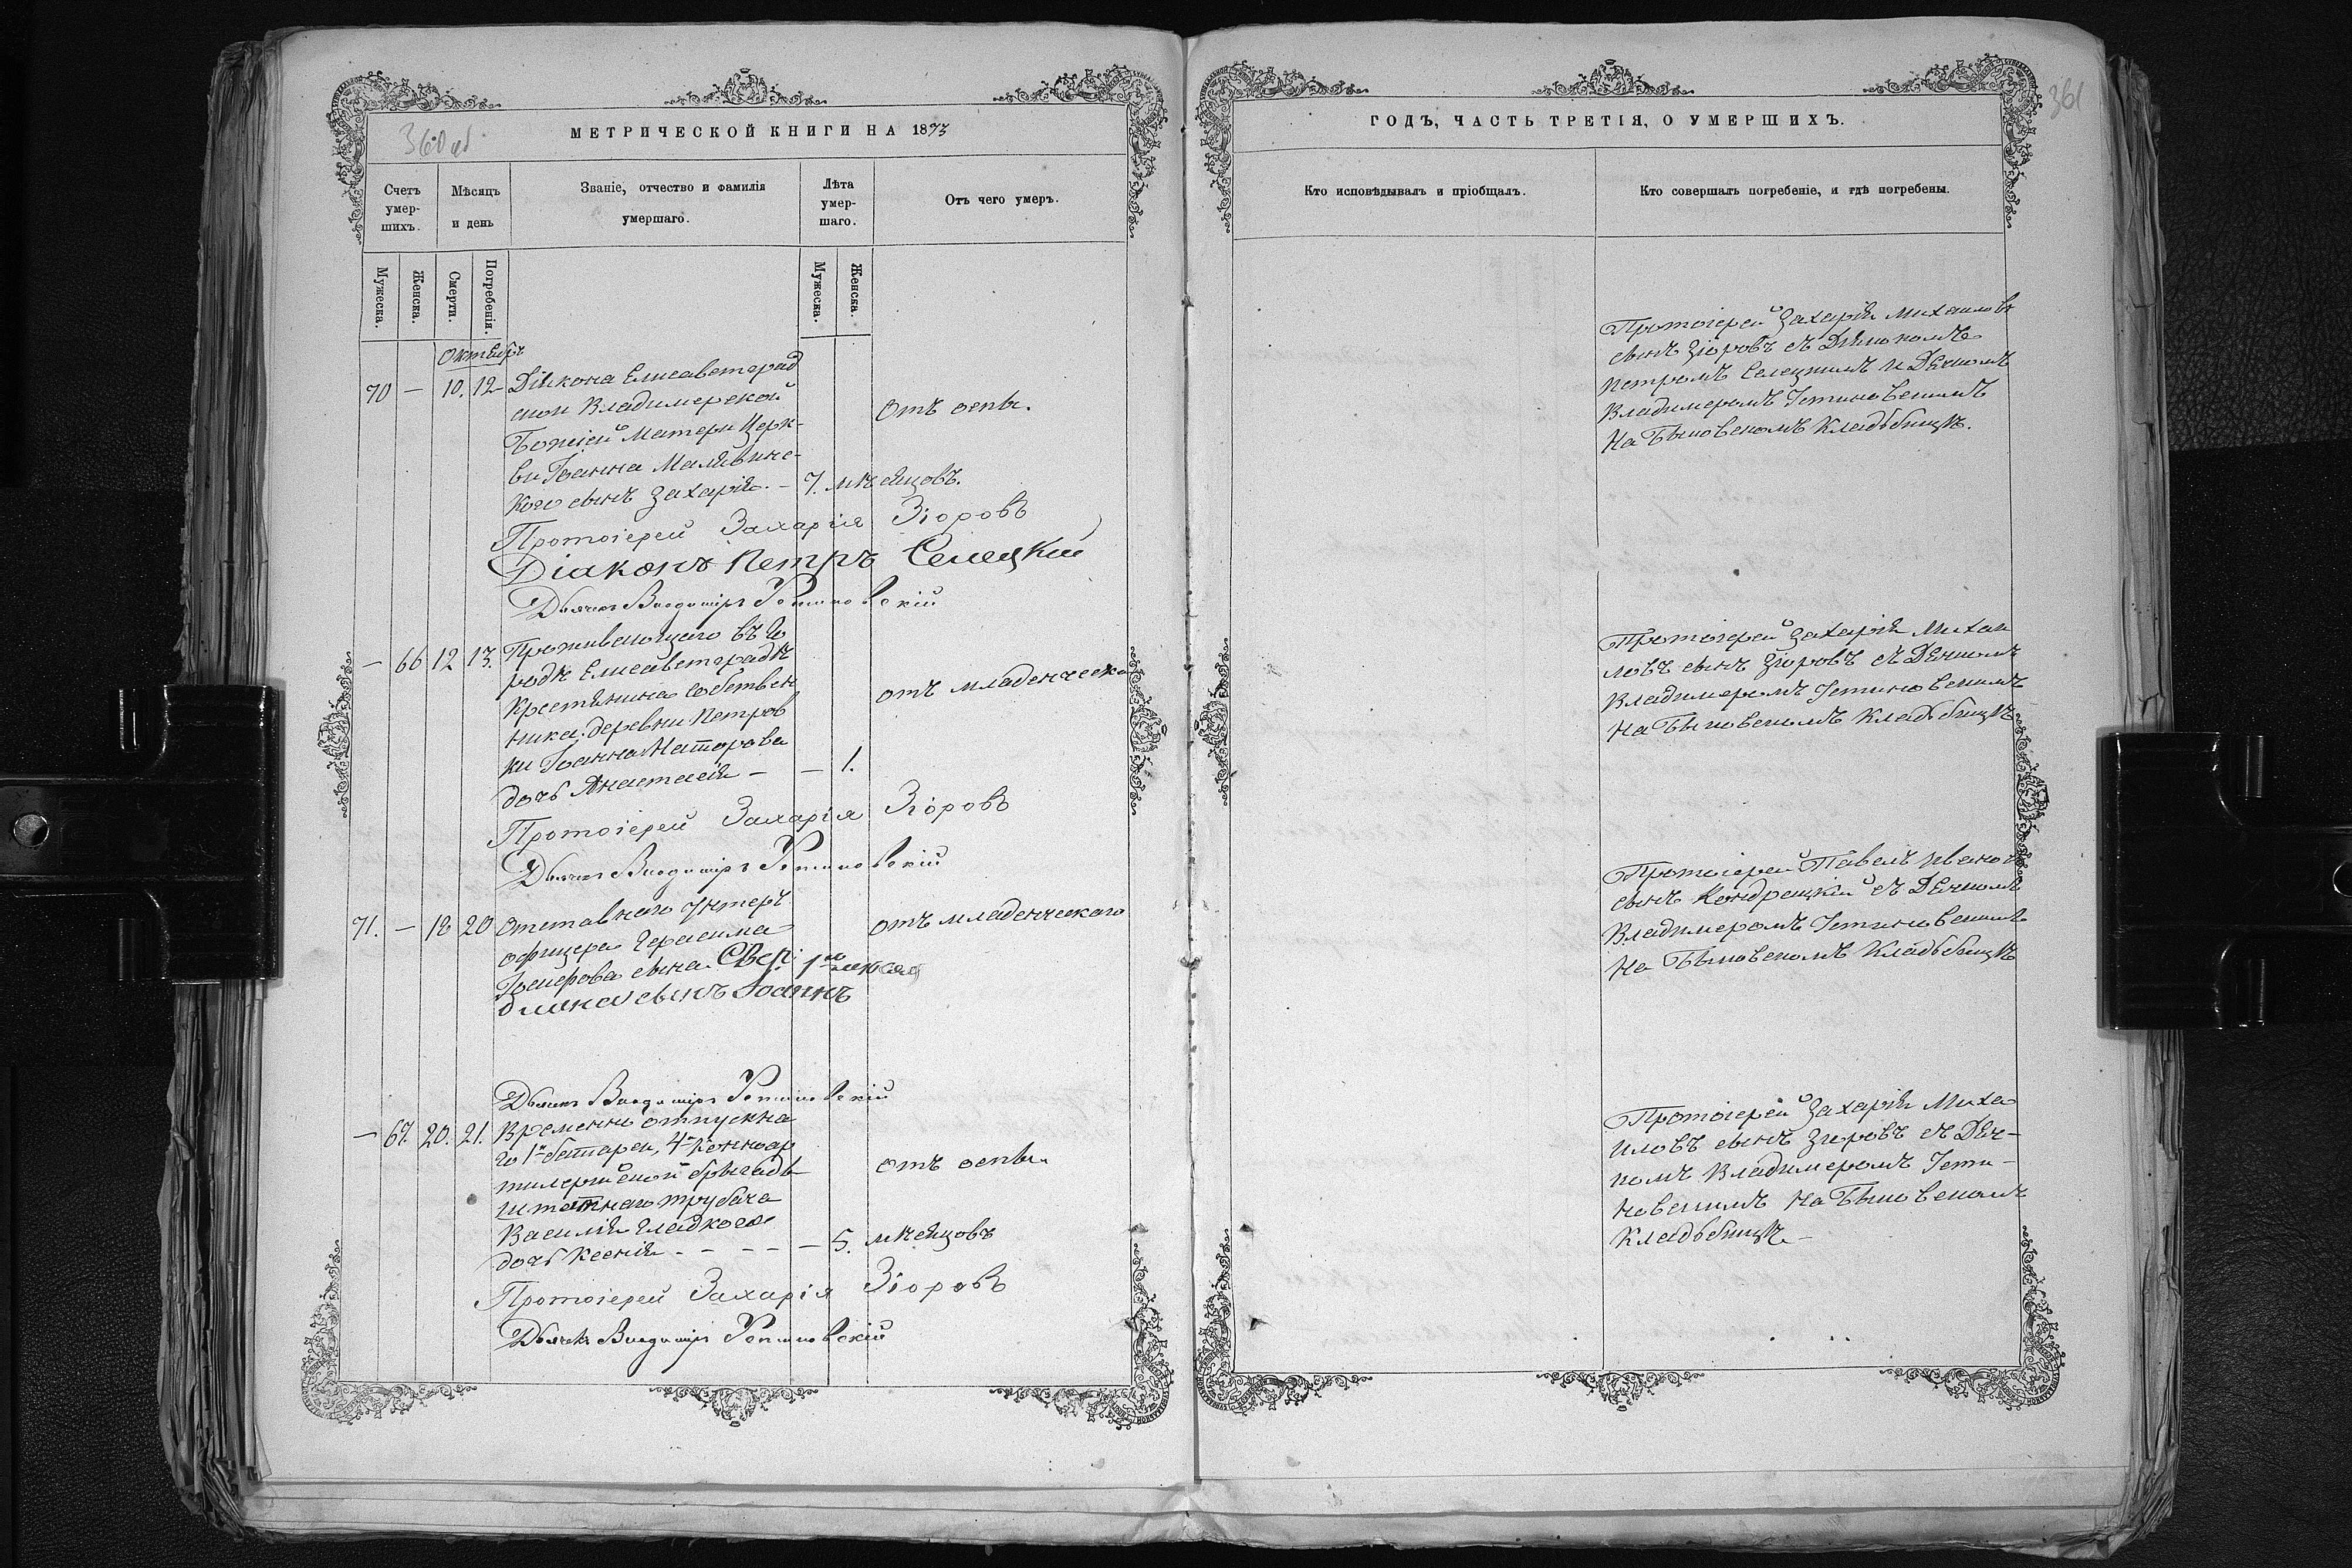 360 об
МЕТРИЧЕСКОЙ КНИГИ НА 1873
Счетъ умер-шихъ.
Мѣсяцъ и день
Званіе, отчество и фамилія умершаго.
Лѣта умер-шаго.
Отъ чего умеръ.
Мужеска.
Женска.
Смерти.
Погребенія.
Мужеска.
Женска.
Октябрь
70 — 10. 12 Діакона Елисаветград
ской Владимерской
Божіей Матери Церк-
ви Іоанна Малявинс-
кого сынъ Захарія. — 7. мѣсяцовъ.
отъ оспы.
Протоіерей Захарія Зіоровъ
Діаконъ Петръ Селецкій
Дьячекъ Владиміръ
— 66 12 13. Проживающаго въ го
родѣ Елисаветградѣ
Крестьянина собствен
ника деревни Петров
ки Іоанна
дочь Анастасія — — 1.
отъ младенческо
Протоіерей Захарія Зіоровъ
Дьячекъ Владиміръ
71. — 18 20 Отставного Унтеръ
офицера Герасима
сына
сынъ Іоаннъ
отъ младенческаго
Дьячекъ Владиміръ
— 67. 20. 21. Временно отпускна
го 1й батареи, 4й Конноар
тилерійской бригады
штатнаго трубача
Василія Гладкова
дочь Ксенія - - - - — 5. мѣсяцовъ
отъ оспы.
Протоіерей Захарія Зіоровъ
Дьячекъ Владиміръ
361
ГОДЪ, ЧАСТЬ ТРЕТІЯ, О УМЕРШИХЪ.
Кто исповѣдывалъ и пріобщалъ.
Кто совершалъ погребеніе, и гдѣ погребены.
Протоіерей Захарія Михаиловъ
сынъ Зіоровъ съ Діакономъ
Петромъ Селецкимъ и Дьячкомъ
Владимеромъ
На Быковскомъ Кладбищѣ.
Протоіерей Захарія Михаи
ловъ сынъ Зіоровъ съ Дьячкомъ
Владимеромъ
На Быковскомъ Кладбищѣ
Протоіерей Павелъ Иванов
сынъ Кондрацкій съ Дьячкомъ
Владимеромъ
На Быковскомъ Кладбищѣ
Протоіерей Захарія Миха
иловъ сынъ Зіоровъ съ Дьяч-
комъ Владимеромъ
На Быковскомъ
Кладбищѣ. —